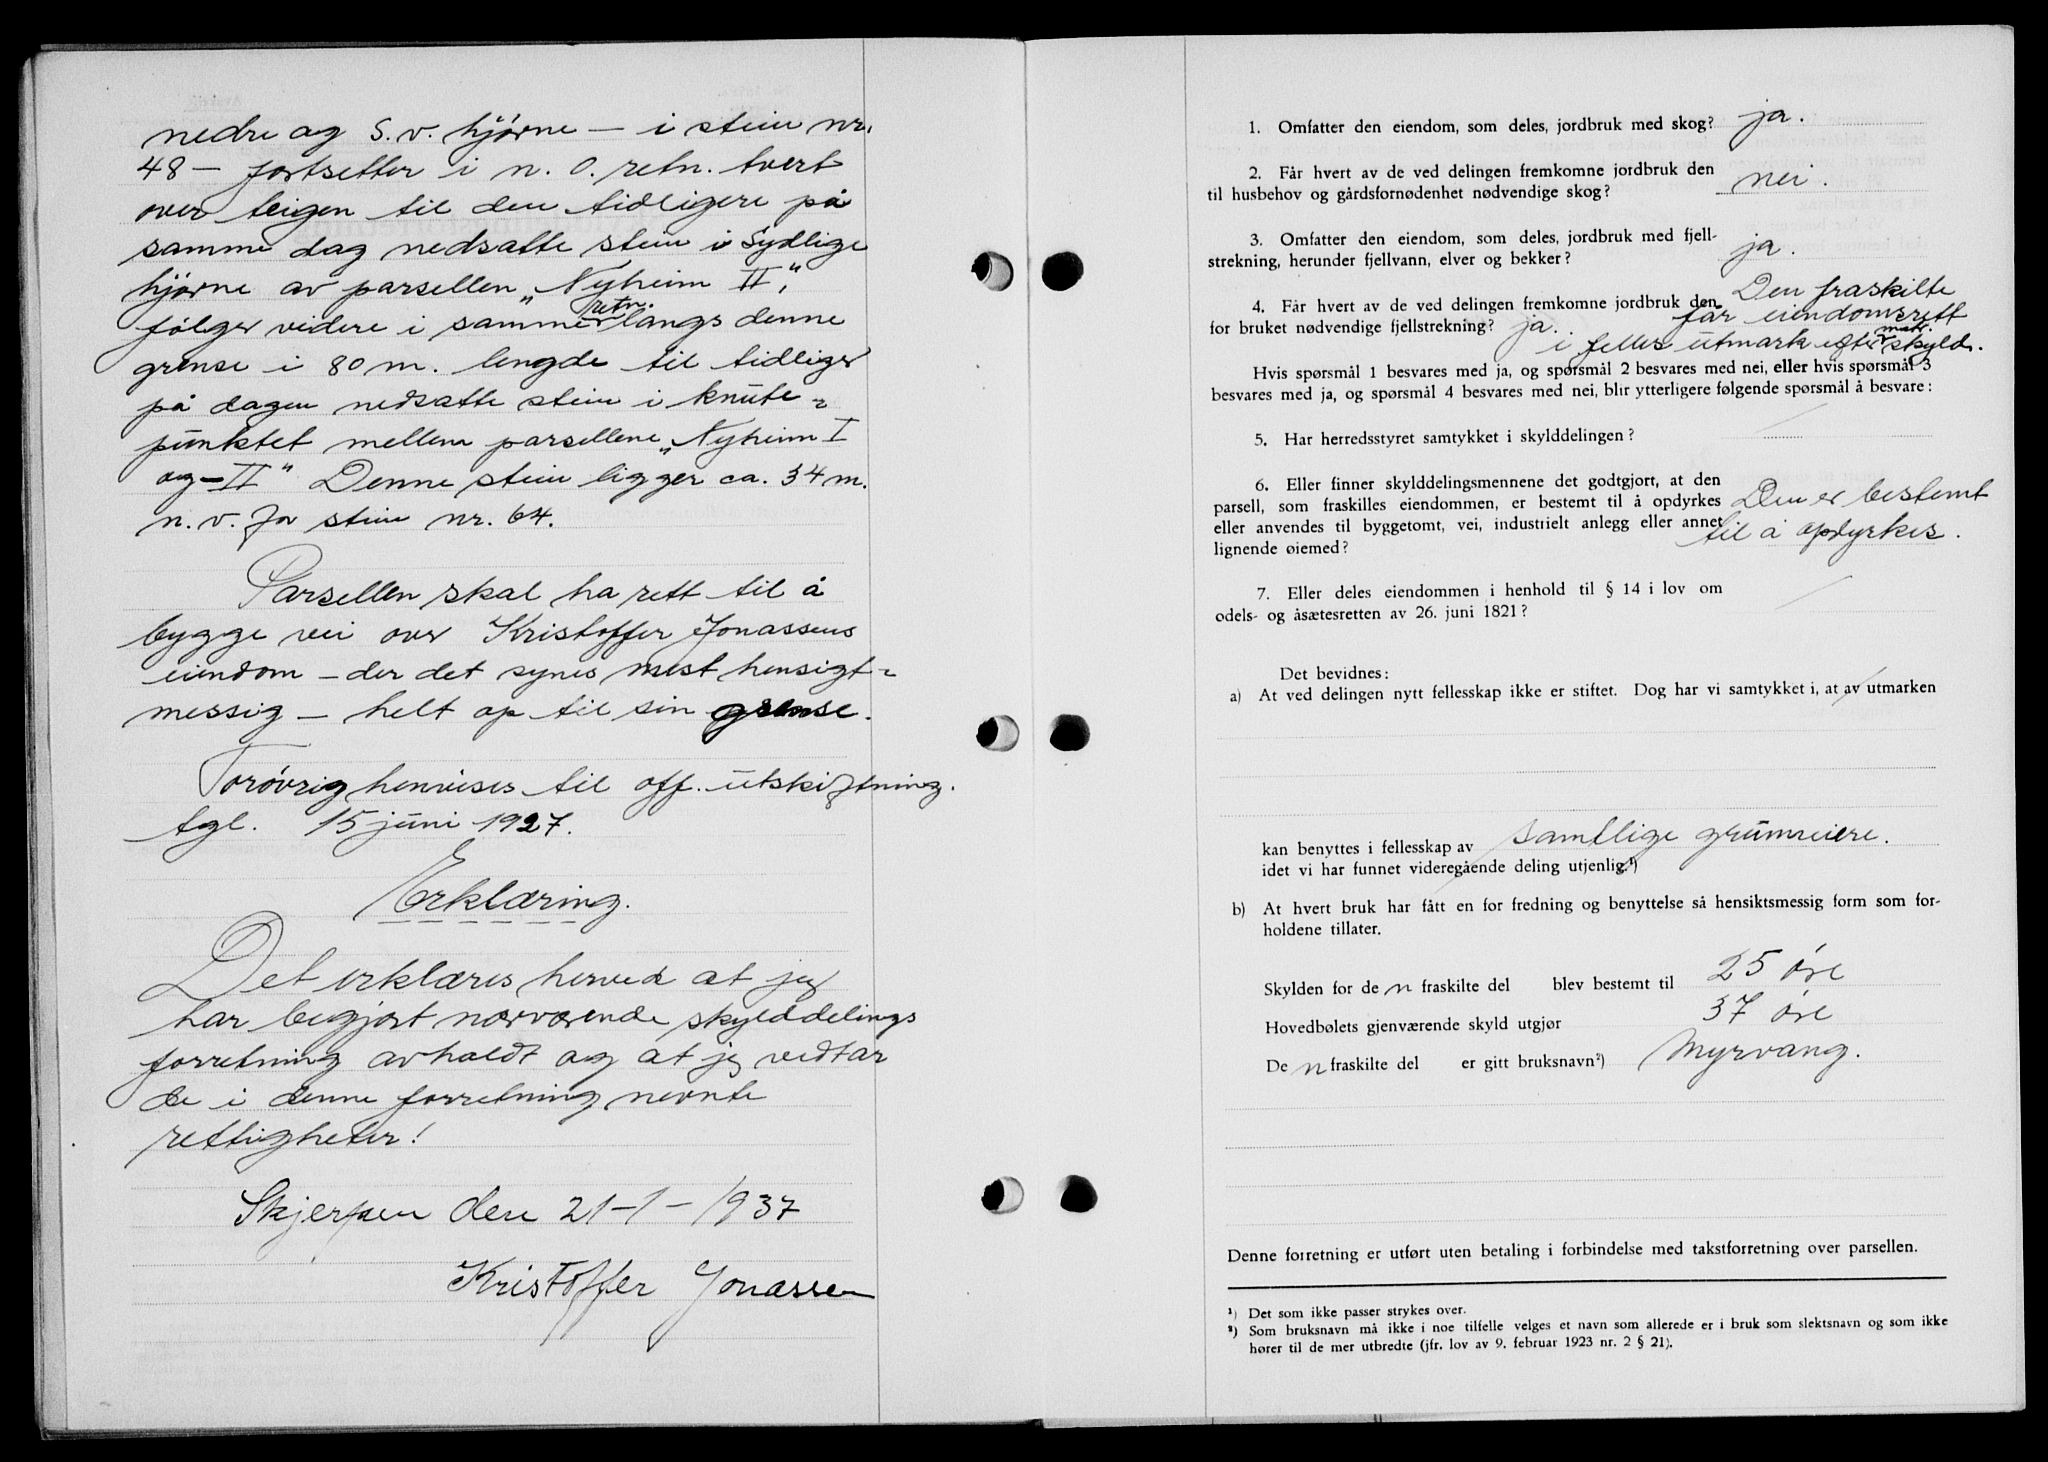 nedre og S.v. hjørne – i stein nr.
48 – fortsetter i n. o. retn. tvert
over teigen til den tidligere på
samme dag nedsatte stein i Sydlige
hjørne av parsellen „Nyheim II",
følger videre i samme retn. langs denne
grense i 80 m. lengde til tidliger
på dagen nedsatte stein i knute-
punktet mellem parsellene „Nyheim I
og – II" Denne stein ligger ca. 34 m.
n.v. for stein nr. 64.
Parsellen skal ha rett til å
bygge vei over Kristoffer Jonassens
eiendom – der det synes mest hensigt-
messig – helt op til sin grense.
Forøvrig henvises til off. utskiftning.
tgl. 15 juni 1927.
Erklæring.
Det erklæres herved at jeg
har begjørt nærværende skylddelings
forretning avholdt og at jeg vedtar
de i denne forretning nevnte
rettigheter!
Skjerpen den 21-1-1937
Kristoffer Jonassen
1. Omfatter den eiendom, som deles, jordbruk med skog? ja.
2. Får hvert av de ved delingen fremkomne jordbruk den
til husbehov og gårdsfornødenhet nødvendige skog? nei.
3. Omfatter den eiendom, som deles, jordbruk med fjell-
strekning, herunder fjellvann, elver og bekker? ja.
4. Får hvert av de ved delingen fremkomne jordbruk den
for bruket nødvendige fjellstrekning? ja. Den fraskilte
får eiendomsrett
i felles utmark efter matr. skyld.
Hvis spørsmål 1 besvares med ja, og spørsmål 2 besvares med nei, eller hvis spørsmål 3
besvares med ja, og spørsmål 4 besvares med nei, blir ytterligere følgende spørsmål å besvare:
5. Har herredsstyret samtykket i skylddelingen?
6. Eller finner skylddelingsmennene det godtgjort, at den
parsell, som fraskilles eiendommen, er bestemt til å opdyrkes
eller anvendes til byggetomt, vei, industrielt anlegg eller annet
lignende øiemed? Den er bestemt
til å opdyrkes.
7. Eller deles eiendommen i henhold til § 14 i lov om
odels- og åsætesretten av 26. juni 1821?
Det bevidnes:
a) At ved delingen nytt fellesskap ikke er stiftet. Dog har vi samtykket i, at av utmarken
kan benyttes i fellesskap av samtlige grunneiere.
idet vi har funnet videregående deling utjenlig.¹)
b) At hvert bruk har fått en for fredning og benyttelse så hensiktsmessig form som for-
holdene tillater.
Skylden for de n fraskilte del blev bestemt til 25 øre
Hovedbølets gjenværende skyld utgjør 37 øre
De n fraskilte del er gitt bruksnavn²) Myrvang.
Denne forretning er utført uten betaling i forbindelse med takstforretning over parsellen.
¹) Det som ikke passer strykes over.
²) Som bruksnavn må ikke i noe tilfelle velges et navn som allerede er i bruk som slektsnavn og som ikke
hører til de mer utbredte (jfr. lov av 9. februar 1923 nr. 2 § 21).